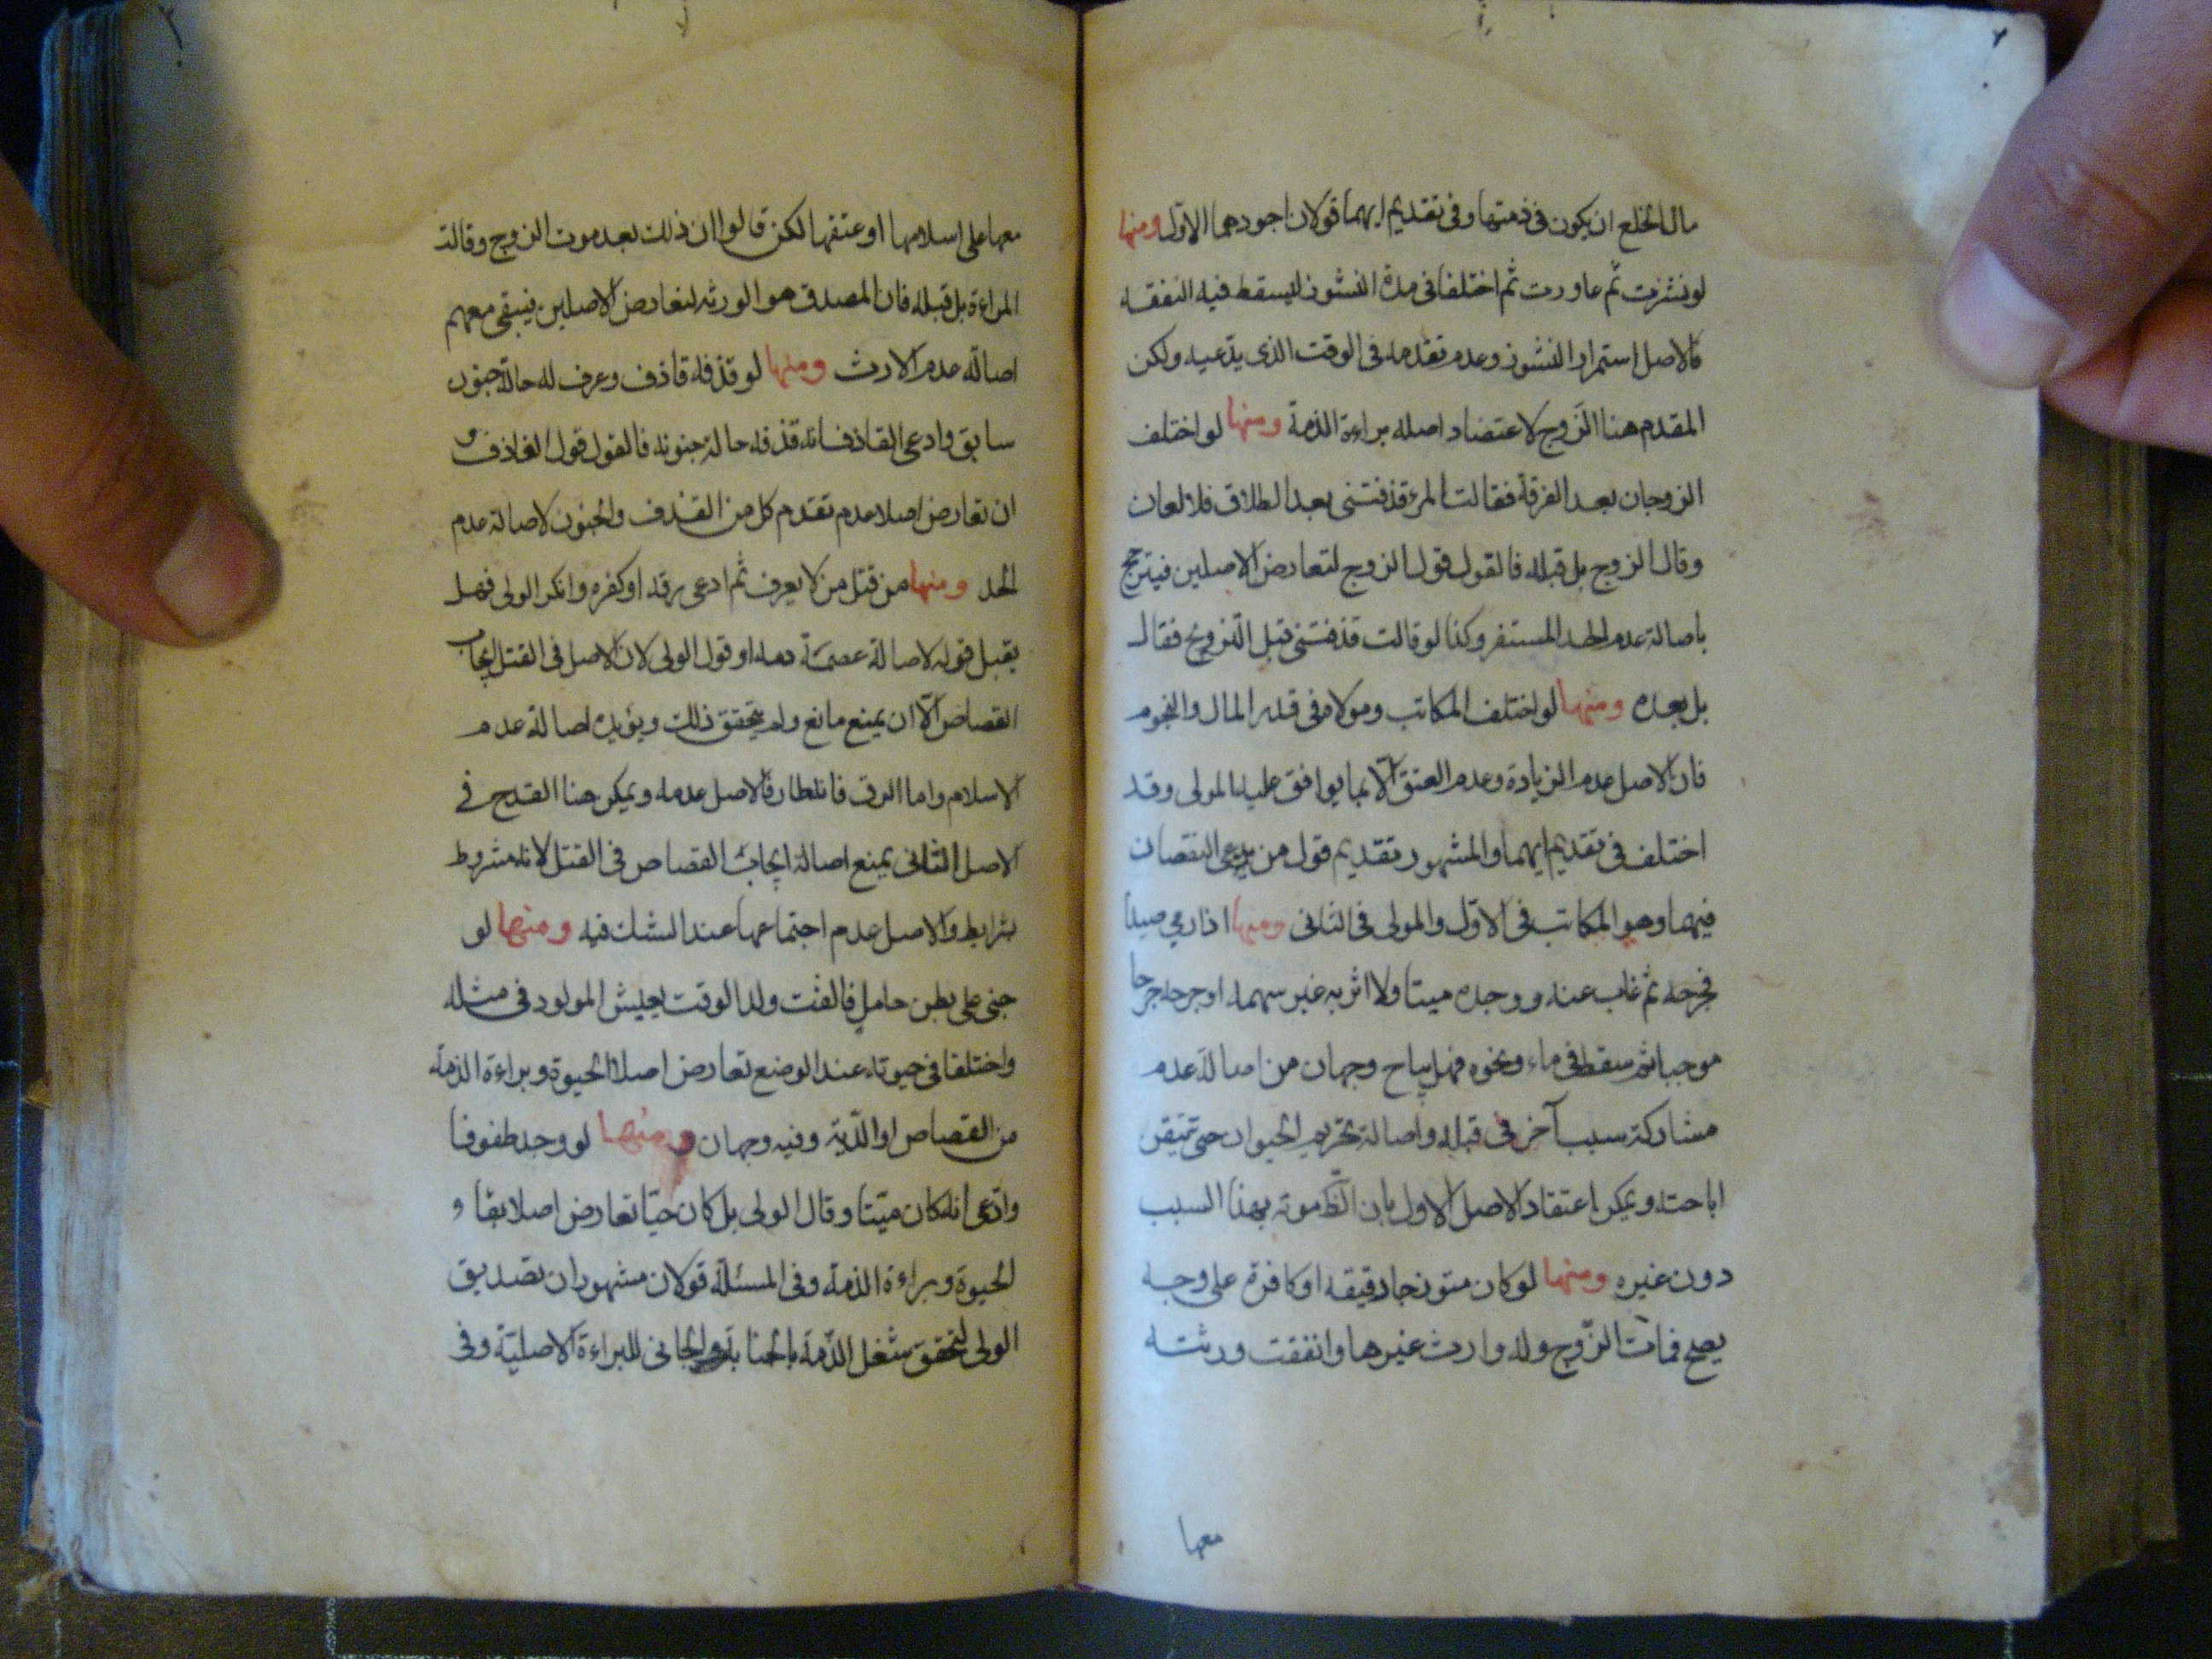 مال الخلع ان يكون فى ذمتها وفى تقديم ايهما قولان اجودهما الاوّل ومنها
لو نشزت ثم عاورت ثم اختلفا فى مدة النشوز ليسقط فيه النفقه
فالاصل استمرار النشوز وعدم تقدمه فى الوقت الذى يدّعيه ولكن
المقدم هنا الزوج لاعتضاد اصله براءة الذمة ومنها لو اختلف
الزوجان بعد الفرقة فقالت المرءة قذفتنى بعد الطلاق فلا لعان
وقال الزوج بل قبله فالقول قول الزوج لتعارض الاصلين فيترجح
باصالة عدم الحد المستقر وكذا لو قالت قذفتنى قبل التزويج فقال
بل بعده ومنها لو اختلف المكاتب ومولاه فى قدر المال والنجوم
فان الاصل عدم الزيادة وعدم العتق الّا بما يوافق عليه المولى وقد
اختلف فى تقديم ايهما والمشهور تقديم قول من يدعى النقصان
فيهما وهو المكاتب فى الاوّل والمولى فى الثانى ومنها اذا رمى صيدا
فجرحه ثم غاب عنه ووجده ميتا ولا اثر به غير سهمه او جرحه جرحا
موجبا ثم سقط فى ماء ونحوه فهل يباح وجهان من اصالة عدم
مشاركة سبب آخر فى قبله واصالة تحريم الحيوان حتى تتيقن
اباحته ويمكن اعتقاد الاصل الاول بان الظ موته بهذا السبب
دون غيره ومنها لو كان متزوجا رقيقه او كافرة على وجه
يصح فمات الزوج وله وارث غيرها واتفقت ورثته
معها
معها على اسلامها او عتقها لكن قالوا ان ذلك بعد موت الزوج وقالت
المراءة بل قبله فان المصدق هو الورثه لتعارض الاصلين فيبقى معهم
اصالة عدم الارث ومنها لو قذفه قاذف وعرف له حالة جنون
سابق وادعى القاذف انه قذفه حالة جنونه فالقول قول القاذف و
ان تعارض اصلا عدم تقدم كل من القذف والجنون لاصالة عدم
الحد ومنها من قتل من لا يعرف ثم ادعى رقه او كفره وانكر الولى فهل
يقبل قوله لاصالة عصمة دمه او قول الولى لان الاصل فى القتل ايجاب
القصاص الّا ان يمنع مانع ولم يتحقق ذلك ويؤيده اصالة عدم
الاسلام واما الرق فانه طار فالاصل عدمه ويمكن هنا القدح فى
الاصل الثانى بمنع اصالة ايجاب القصاص فى القتل لانه مشروط
بشرايط والاصل عدم اجتماعها عند الشك فيه ومنها لو
جنى على بطن حامل فالقت ولدا لوقت يعيش المولود فى مثله
واختلفا فى حيوته عند الوضع تعارض اصلا الحيوة وبراءة الذمة
من القصاص او الدّية وفيه وجهان ومنها لو وجد ملفوفا
وادّعى انه كان ميّتا وقال الولى بل كان حيّا تعارض اصلا بقاء
الحيوة وبراءة الذمة وفى المسئلة قولان مشهوران تصديق
الولى لتحقق شغل الذّمة بالجناية والجانى للبراءة الاصليّة وفى